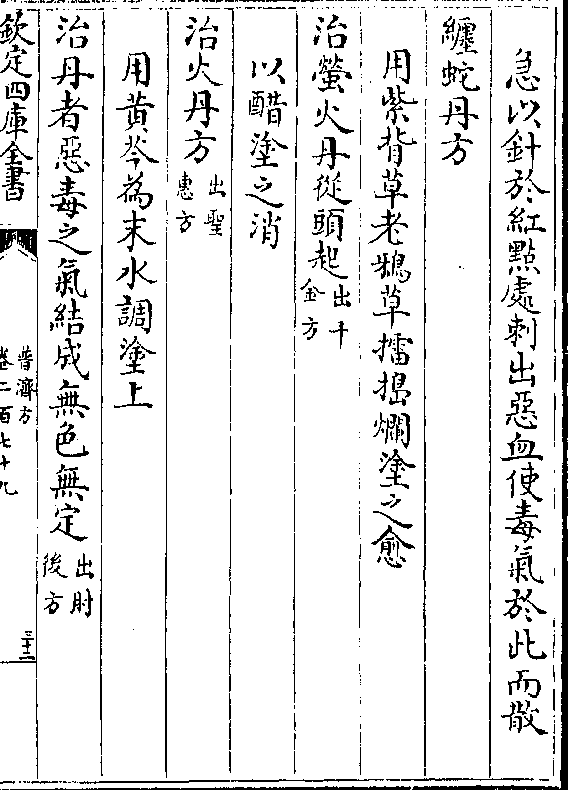 急以針於紅點處刺出惡血使毒氣於此而散
纏蛇丹方
用紫背草老鴉草擂搗爛塗之愈
治螢火丹從頭起出千金方
以醋塗之消
治火丹方出聖惠方
用黃芩為末水調塗上
治丹者惡毒之氣結成無色無定出肘後方
欽定四庫全書
普濟方
卷二百七十九